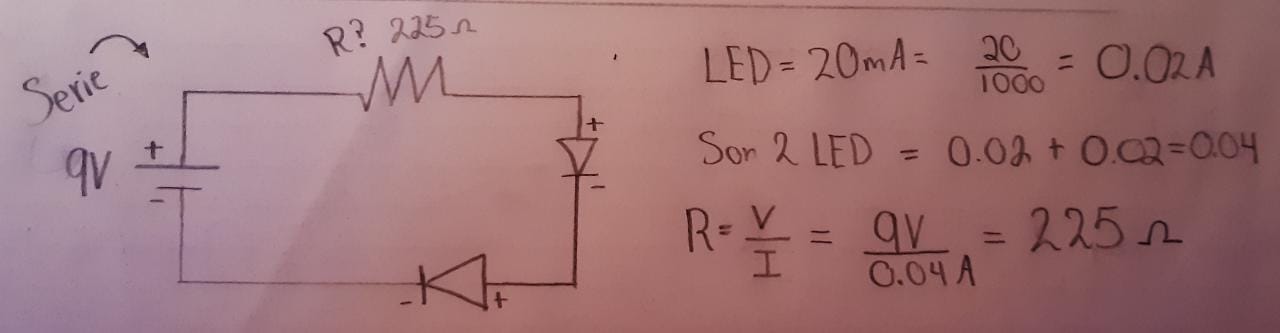 Serie
R? 225 Ω
9V
+
-
+
-
-
+
LED = 20mA = 20/1000 = 0.02A
Son 2 LED = 0.02 + 0.02 = 0.04
R = V/I = 9V/0.04A = 225 Ω